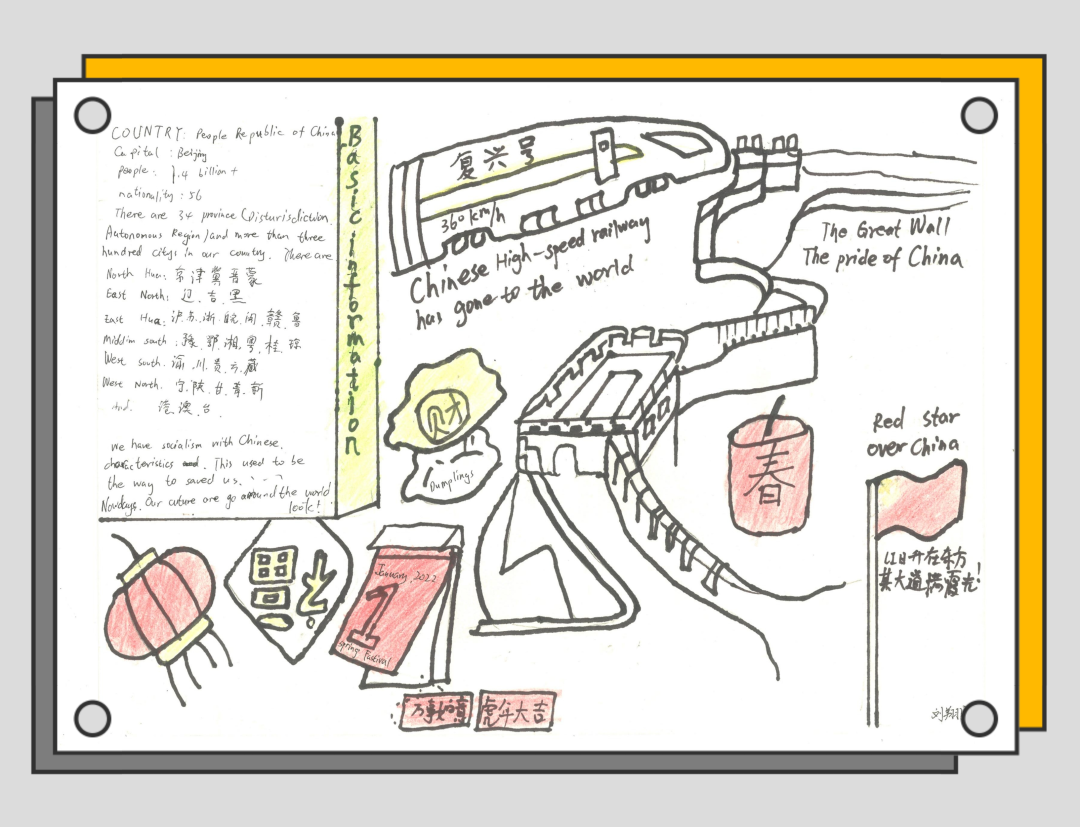 COUNTRY: People Republic of China
Capital : Beijing
people : 1.4 billion +
nationality : 56
There are 34 province (Disturisdiction,
Autonomous Region) and more than three
hundred citys in our country. There are
North Hua: 京 津 冀 晋 蒙
East North: 辽. 吉. 黑
East Hua: 沪. 苏. 浙. 皖. 闽. 赣. 鲁
Middlim south : 豫. 鄂. 湘. 粤. 桂. 琼
West south: 渝. 川. 贵. 云. 藏
West North. 宁. 陕. 甘. 青. 新
And. 港. 澳. 台.
we have socialism with Chinese.
characteristics. This used to be
the way to saved us.
Nowdays. Our cuture are go around the world
look!
Basic information
复兴号
360km/h
Chinese High-speed railway
has gone to the world
The Great Wall
The pride of China
财
Dumplings
春
Red star
over China
红日升在东方
其大道满霞光!
福
January, 2022
1
Spring Fastival
万事如意
虎年大吉